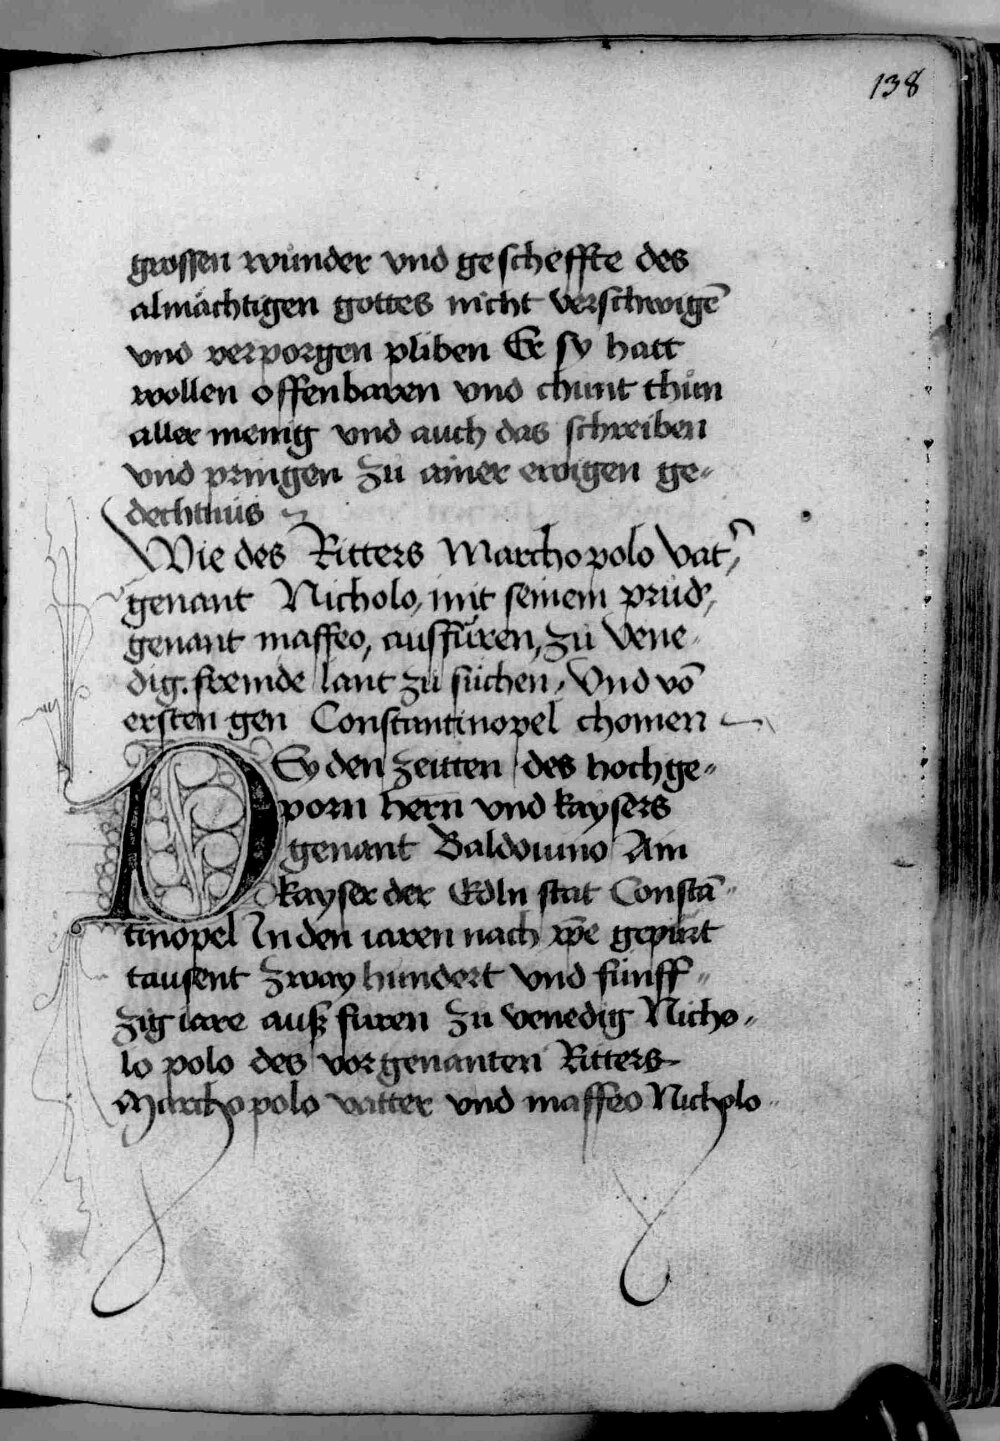 138
grossen wunder vnd gescheffte des
almächtigen gottes nicht verschwigē
vnd verporgen pliben Er sy hatt
wollen offenbaren vnd chunt thůn
aller menig vnd auch das schreiben
vnd pringen zů ainer ewigen ge„
dechtnus
Wie des Ritters Marcho polo vat᷑,
genant Nicholo, mit seinem průd᷑,
genant maffeo, ausfůren, zů Vene„
dig. fremde lant zů sůchen, Vnd vō
ersten gen Constantinopel chomen
Sy den zeitten des hochge„
porn hern vnd kaysers
genant Baldouino Am
kayser der Edln stat Constā„
tinopel In den iaren nach xp̄e gepůrt
tausent zway hundert vnd fünff„
zig iare auß furen zu venedig Nicho„
lo polo des vorgenanten Ritters
Marcho polo vatter vnd maffeo Nicholo